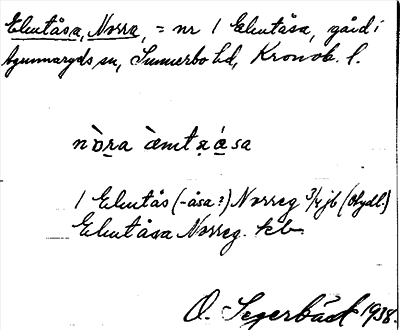 Elmtåsa, Norra, = nr 1 Elmtåsa, gård i
Agunnaryds sn, Sunnerbo hd, Kronob. l.
nò̱ra àmtṛá̱sa
1 Elmtås (-åsa?) Norreg 3/4 jb (Hydl.)
Elmtåsa Norreg. kb
O. Segerbäck 1938.